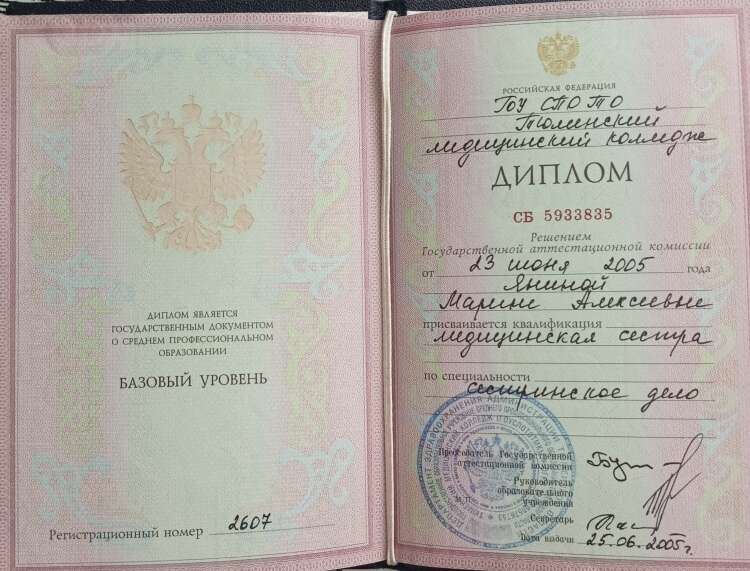 ДИПЛОМ ЯВЛЯЕТСЯ
ГОСУДАРСТВЕННЫМ ДОКУМЕНТОМ
О СРЕДНЕМ ПРОФЕССИОНАЛЬНОМ
ОБРАЗОВАНИИ
БАЗОВЫЙ УРОВЕНЬ
Регистрационный номер 2607
РОССИЙСКАЯ ФЕДЕРАЦИЯ
ГОУ СПО ТО
Тюменский
медицинский колледж
ДИПЛОМ
СБ 5933835
Решением
Государственной аттестационной комиссии
от 23 июня 2005 года
Яниной
Марине Алексеевне
присваивается квалификация
медицинская сестра
по специальности
сестринское дело
Председатель Государственной
аттестационной комиссии
Руководитель
образовательного
учреждения
М.П.
Секретарь
Дата выдачи 25.06.2005г